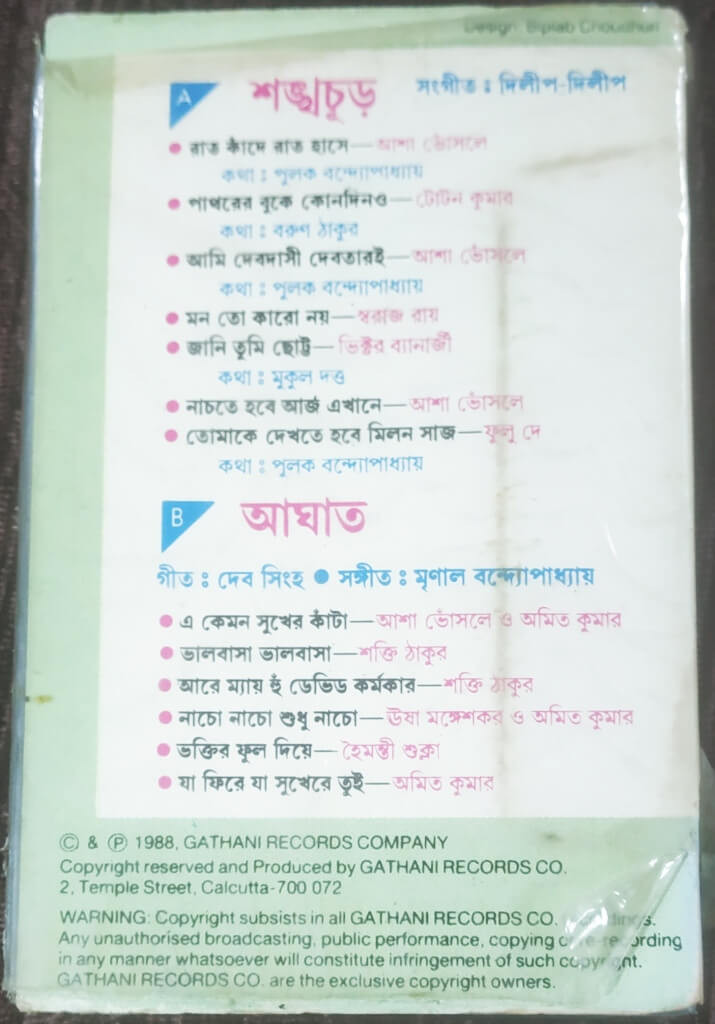 Design: Biplab Choudhuri
A শঙ্খচূড় সংগীত : দিলীপ-দিলীপ
● রাত কাঁদে রাত হাসে—আশা ভোঁসলে
কথা : পুলক বন্দ্যোপাধ্যায়
● পাথরের বুকে কোনদিনও—টোটন কুমার
কথা : বরুণ ঠাকুর
● আমি দেবদাসী দেবতারই—আশা ভোঁসলে
কথা : পুলক বন্দ্যোপাধ্যায়
● মন তো কারো নয়—স্বরাজ রায়
● জানি তুমি ছোট্ট—ভিক্টর ব্যানার্জী
কথা : মুকুল দত্ত
● নাচতে হবে আজ এখানে—আশা ভোঁসলে
● তোমাকে দেখতে হবে মিলন সাজ—ফুলু দে
কথা : পুলক বন্দ্যোপাধ্যায়
B আঘাত
গীত : দেব সিংহ ● সঙ্গীত : মৃণাল বন্দ্যোপাধ্যায়
● এ কেমন সুখের কাঁটা—আশা ভোঁসলে ও অমিত কুমার
● ভালবাসা ভালবাসা—শক্তি ঠাকুর
● আরে ম্যায় হুঁ ডেভিড কর্মকার—শক্তি ঠাকুর
● নাচো নাচো শুধু নাচো—ঊষা মঙ্গেশকর ও অমিত কুমার
● ভক্তির ফুল দিয়ে—হৈমন্তী শুক্লা
● যা ফিরে যা সুখেরে তুই—অমিত কুমার
© & ℗ 1988, GATHANI RECORDS COMPANY
Copyright reserved and Produced by GATHANI RECORDS CO.
2, Temple Street, Calcutta-700 072
WARNING: Copyright subsists in all GATHANI RECORDS CO.
Any unauthorised broadcasting, public performance, copying or re-recording
in any manner whatsoever will constitute infringement of such copyright.
GATHANI RECORDS CO. are the exclusive copyright owners.